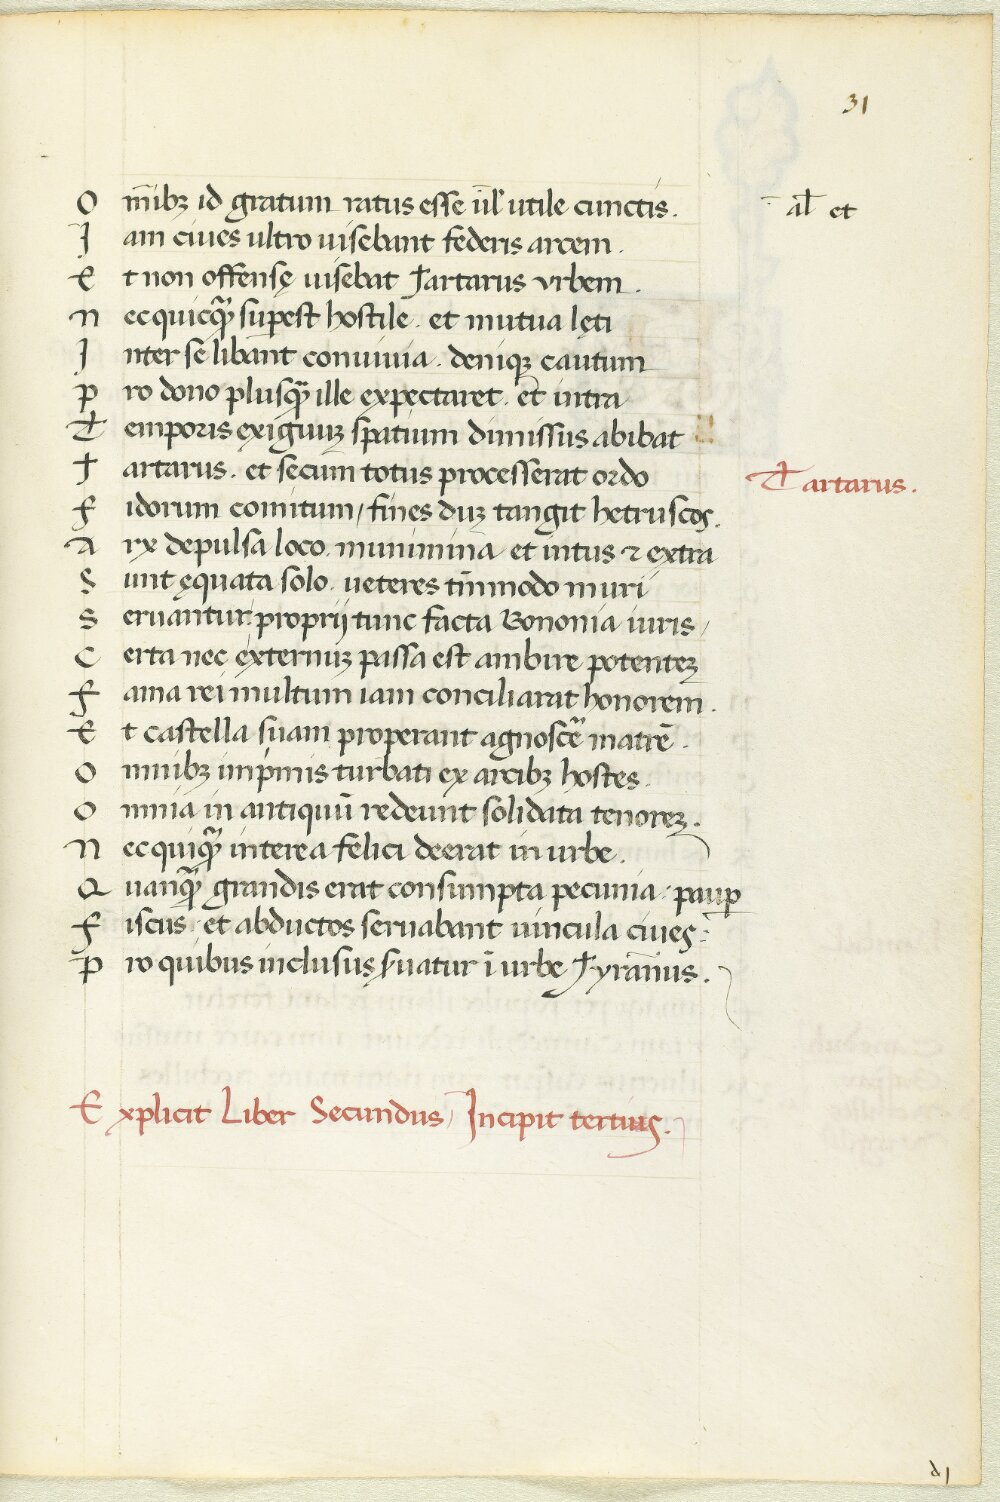 31
O m̄ibꝫ id gratum ratus esse ūl utile cunctis. al̄ et
J am ciues ultro uisebant federis arcem.
E t non offensę uisebat Tartarus vrbem.
N ec quicꝙ̃ suꝑest hostile. et mutua lęti
J nter se libant conuiuia. deniqꝫ cautum
P ro dono plusꝙ̃ ille expectaret. et intra
T emporis exiguuꝫ spatium dimissus abibat
T artarus. et secum totus processerat ordo Tartarus.
F idorum comitum / fines duꝫ tangit hetruscos.
A rx depulsa loco. munimina et intus ⁊ extra
S unt ęquata solo. ueteres tm̄modo muri
S eruantur. proprij tunc facta Bononia iuris /
C erta nec externuꝫ passa est ambire potenteꝫ
F ama rei multum iam conciliarat honorem.
E t castella suam properant agnosce᷑ matrē.
O mnibꝫ inpimis turbati ex arcibꝫ hostes.
O mnia in antiquū redeunt solidata tenoreꝫ.
N ec quiꝙ̃ interea felici deerat in urbe.
Q uanꝙ̃ grandis erat consumpta pecunia. pauꝑ
F iscus. et abductos seruabant uincula ciues:
P ro quibus inclusus s̓uatur ī urbe Tyrānus.
E xplicit Liber Secundus / Incipit tertius.
d1